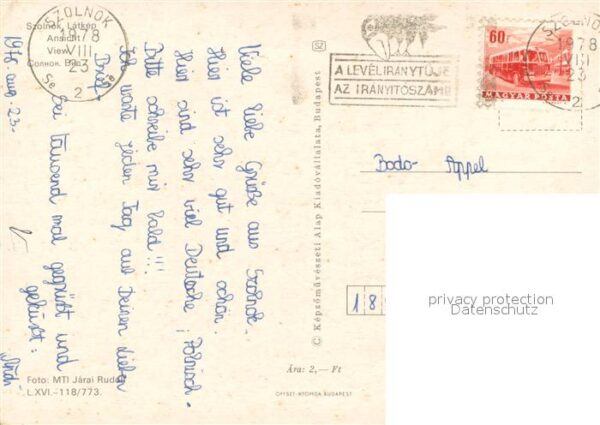 Szolnok, Látkép
Ansicht
View
Солнок. Вид
SZOLNOK
1978
VIII
23
2
1978. aug. 23.
Viele liebe Grüße aus Szolnok.
Hier ist sehr gut und schön.
Hier sind sehr viel Deutsche, Polnisch.
Bitte schreibe mir bald!!!
Ich warte jeden Tag auf Deinen lieben
Brief.
Sei tausend mal gegrüßt und
geküsst:
Foto: MTI Járai Rudolf
L.XVI.-118/773.
SZ
© Képzőművészeti Alap Kiadóvállalata, Budapest
Ára: 2,— Ft
OFFSET-NYOMDA BUDAPEST
A LEVÉL IRÁNYTŰJE
AZ IRÁNYÍTÓSZÁM!
60f
MAGYAR POSTA
SZOLNOK
1978
VIII
23
2
Bodo Appel
18
privacy protection
Datenschutz